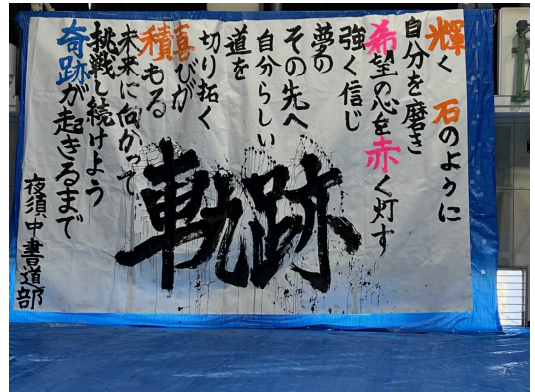 輝く石のように
自分を磨き
希望の心を赤く灯す
強く信じ
夢の
その先へ
自分らしい
道を
切り拓く
喜びが
積もる
未来に向かって
挑戦し続けよう
奇跡が起きるまで
軌跡
夜須中書道部